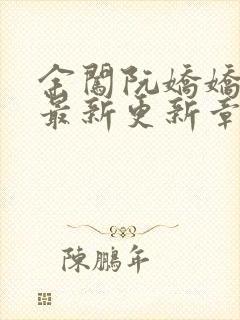 金闖阮嬌嬌
最新更新章
陳鵬年